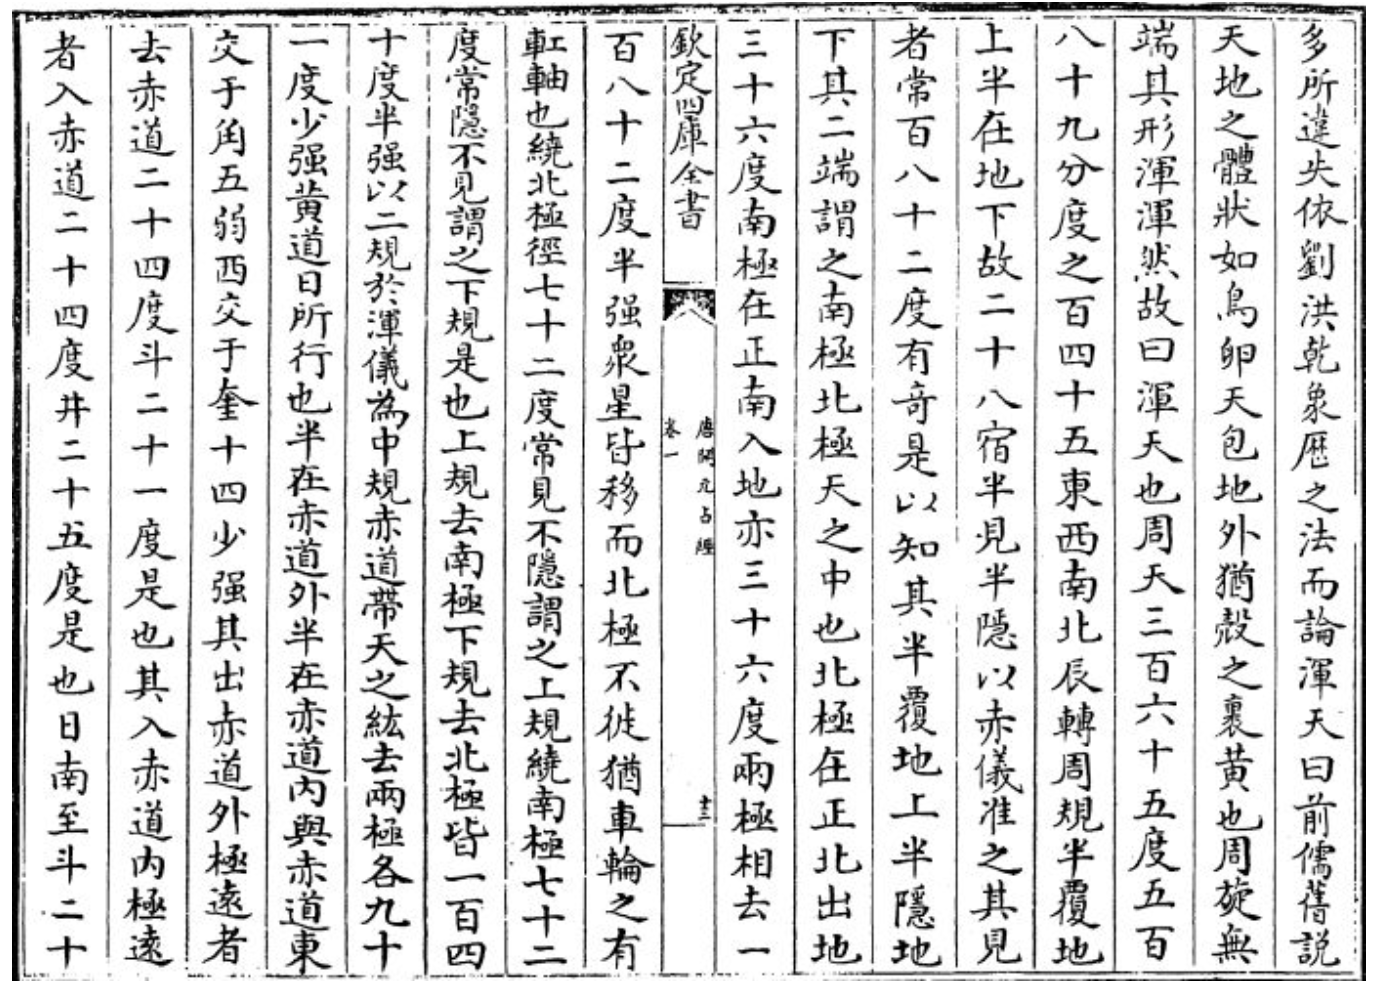 多所違失依劉洪乾象歷之法而論渾天曰前儒舊說
天地之體狀如鳥卵天包地外猶殼之裹黄也周旋無
端其形渾渾然故曰渾天也周天三百六十五度五百
八十九分度之百四十五東西南北辰轉周規半覆地
上半在地下故二十八宿半見半隱以赤儀准之其見
者常百八十二度有奇是以知其半覆地上半隱地
下其二端謂之南極北極天之中也北極在正北出地
三十六度南極在正南入地亦三十六度兩極相去一
欽定四庫全書
唐開元占經
卷一
十三
百八十二度半强衆星皆移而北極不徙猶車輪之有
䡈軸也繞北極徑七十二度常見不隱謂之上規繞南極七十二
度常隱不見謂之下規是也上規去南極下規去北極皆一百四
十度半强以二規於渾儀為中規赤道帶天之紘去兩極各九十
一度少强黄道日所行也半在赤道外半在赤道内與赤道東
交于角五弱西交于奎十四少强其出赤道外極遠者
去赤道二十四度斗二十一度是也其入赤道内極遠
者入赤道二十四度井二十五度是也日南至斗二十